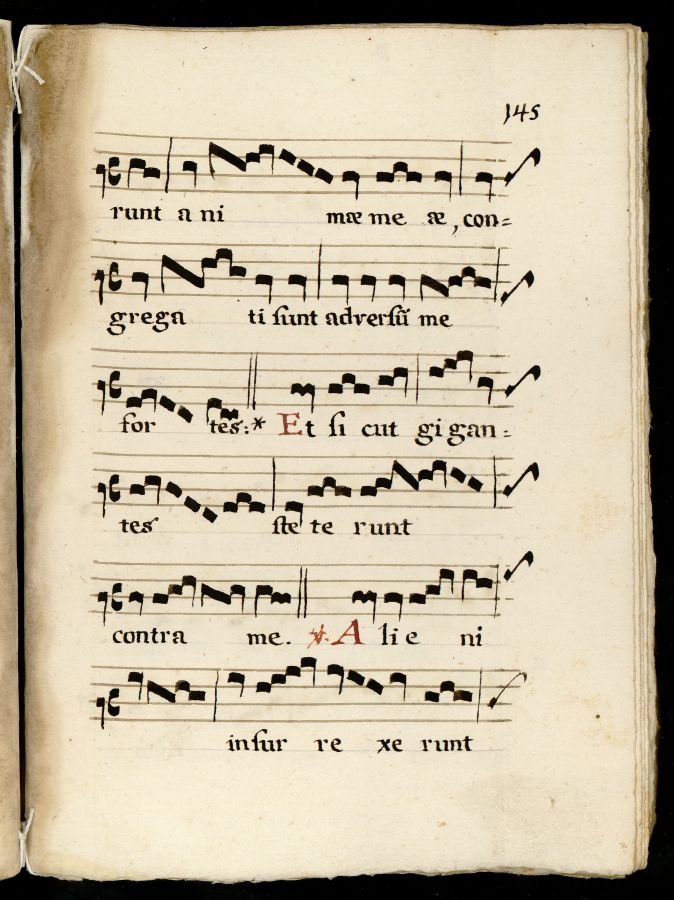 145
runt a ni mæ me æ, con=
grega ti sunt adversũ me
for tes: * Et si cut gi gan=
tes ste te runt
contra me. ℣. A li e ni
insur re xe runt